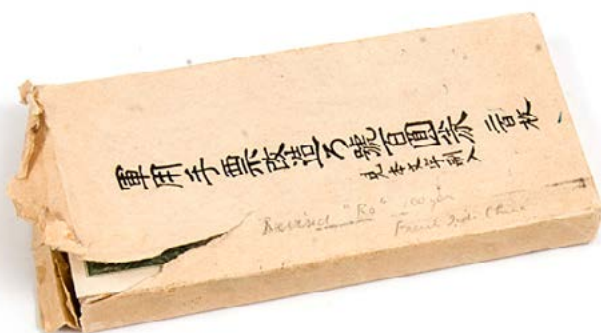 軍用手票改造ろ號百圓券 二百枚
見本文字刷入
Revised "Ro" 100 yen
French Indo-China